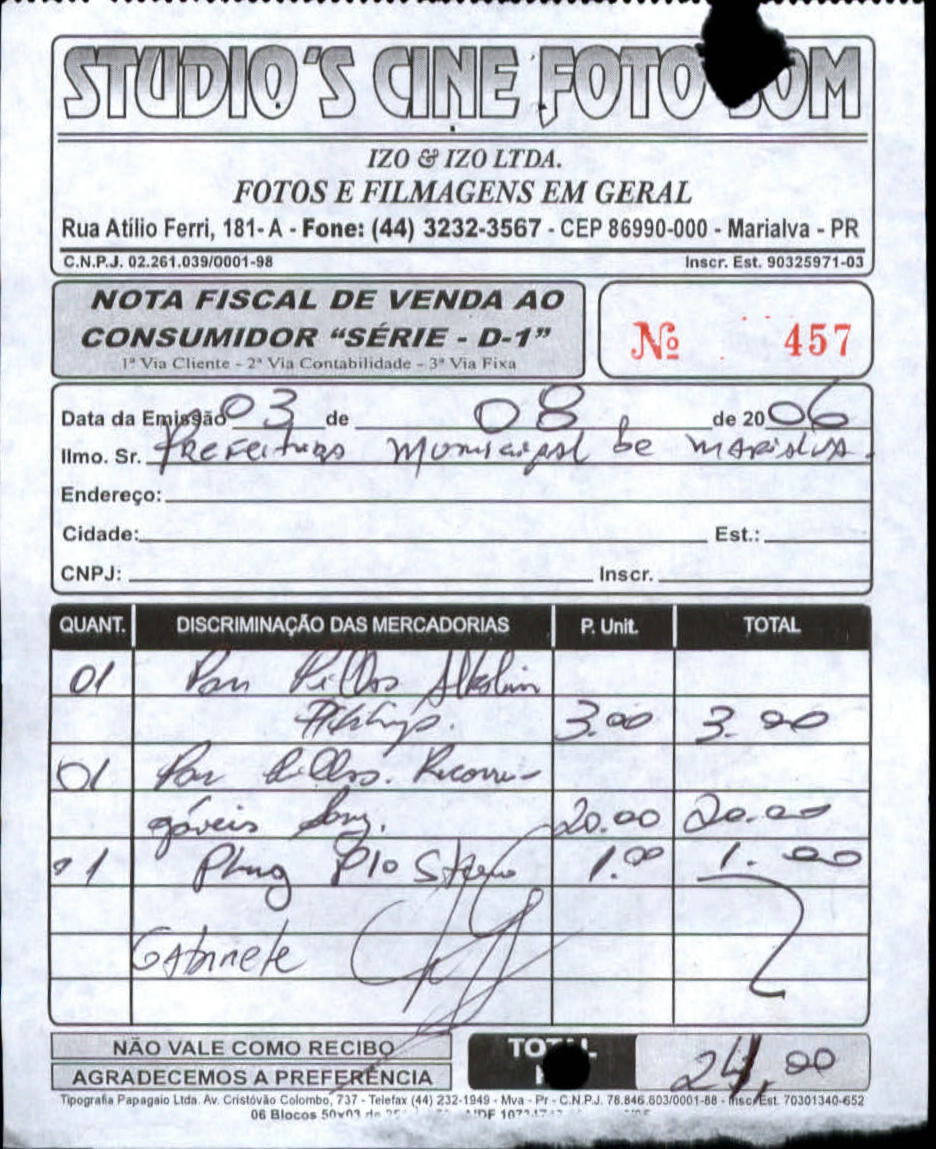 STUDIO'S CINE FOTO SOM
IZO & IZO LTDA.
FOTOS E FILMAGENS EM GERAL
Rua Atílio Ferri, 181-A - Fone: (44) 3232-3567 - CEP 86990-000 - Marialva - PR
C.N.P.J. 02.261.039/0001-98 Inscr. Est. 90325971-03
NOTA FISCAL DE VENDA AO
CONSUMIDOR "SÉRIE - D-1"
1ª Via Cliente - 2ª Via Contabilidade - 3ª Via Fixa
Nº 457
Data da Emissão 03 de 08 de 2006
Ilmo. Sr. Prefeitura Municipal de Marialva.
Endereço:
Cidade: Est.:
CNPJ: Inscr.
QUANT. DISCRIMINAÇÃO DAS MERCADORIAS P. Unit. TOTAL
01 Par Pilhas Alkalin
3.00 3.00
01 Par Pilhas. Recarre-
gáveis Sony. 20.00 20.00
01 Plug P10 Stereo 1.00 1.00
Gabinete
NÃO VALE COMO RECIBO
AGRADECEMOS A PREFERÊNCIA
TOTAL 24,00
Tipografia Papagaio Ltda. Av. Cristóvão Colombo, 737 - Telefax (44) 232-1949 - Mva - Pr - C.N.P.J. 78.846.603/0001-88 - Insc. Est. 70301340-652
06 Blocos 50x03 de